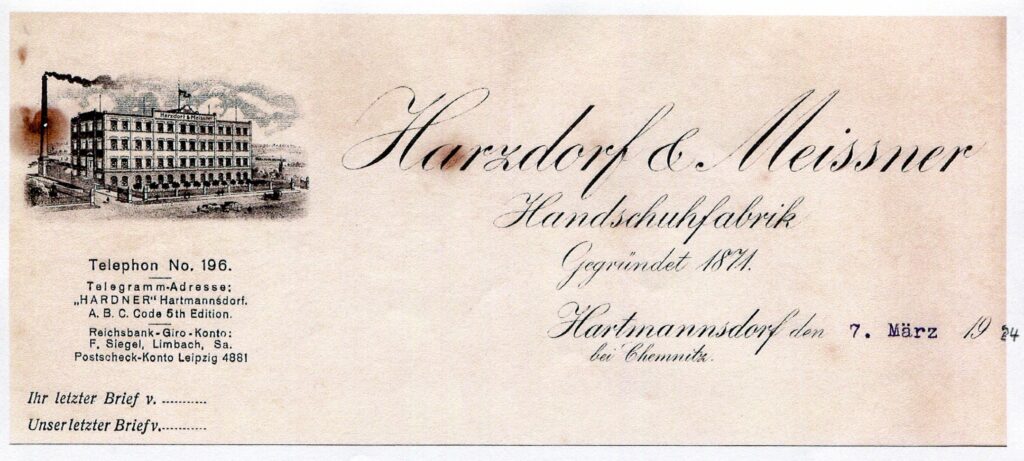 Harzdorf & Meissner
Harzdorf & Meissner
Handschuhfabrik
Gegründet 1871.
Hartmannsdorf den 7. März 1924
bei Chemnitz.
Telephon No. 196.
Telegramm-Adresse:
„HARDNER" Hartmannsdorf.
A. B. C. Code 5th Edition.
Reichsbank-Giro-Konto:
F. Siegel, Limbach, Sa.
Postscheck-Konto Leipzig 4881
Ihr letzter Brief v. ...........
Unser letzter Brief v. ...........